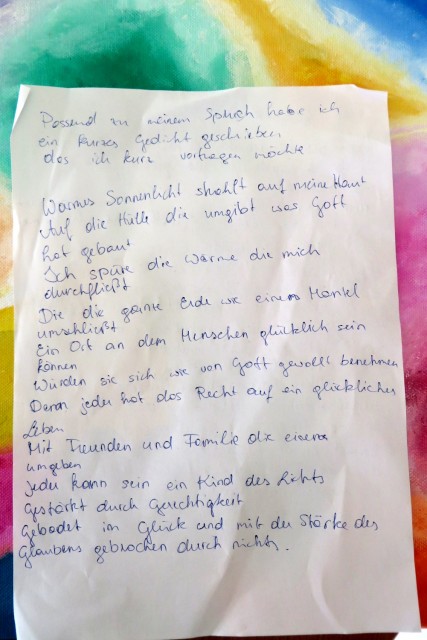 Passend zu meinem Spruch habe ich
ein kurzes Gedicht geschrieben
das ich kurz vortragen möchte
Warmes Sonnenlicht strahlt auf meine Haut
Auf die Hülle die umgibt was Gott
hat gebaut
Ich spüre die Wärme die mich
durchfließt
Die die ganze Erde wie einen Mantel
umschließt
Ein Ort an dem Menschen glücklich sein
können
Würden sie sich wie von Gott gewollt benehmen
Denn jeder hat das Recht auf ein glückliches
Leben
Mit Freunden und Familie die einen
umgeben
Jeder kann sein ein Kind des Lichts
Gestärkt durch Gerechtigkeit
Gebadet im Glück und mit der Stärke des
Glaubens gebrochen durch nichts.